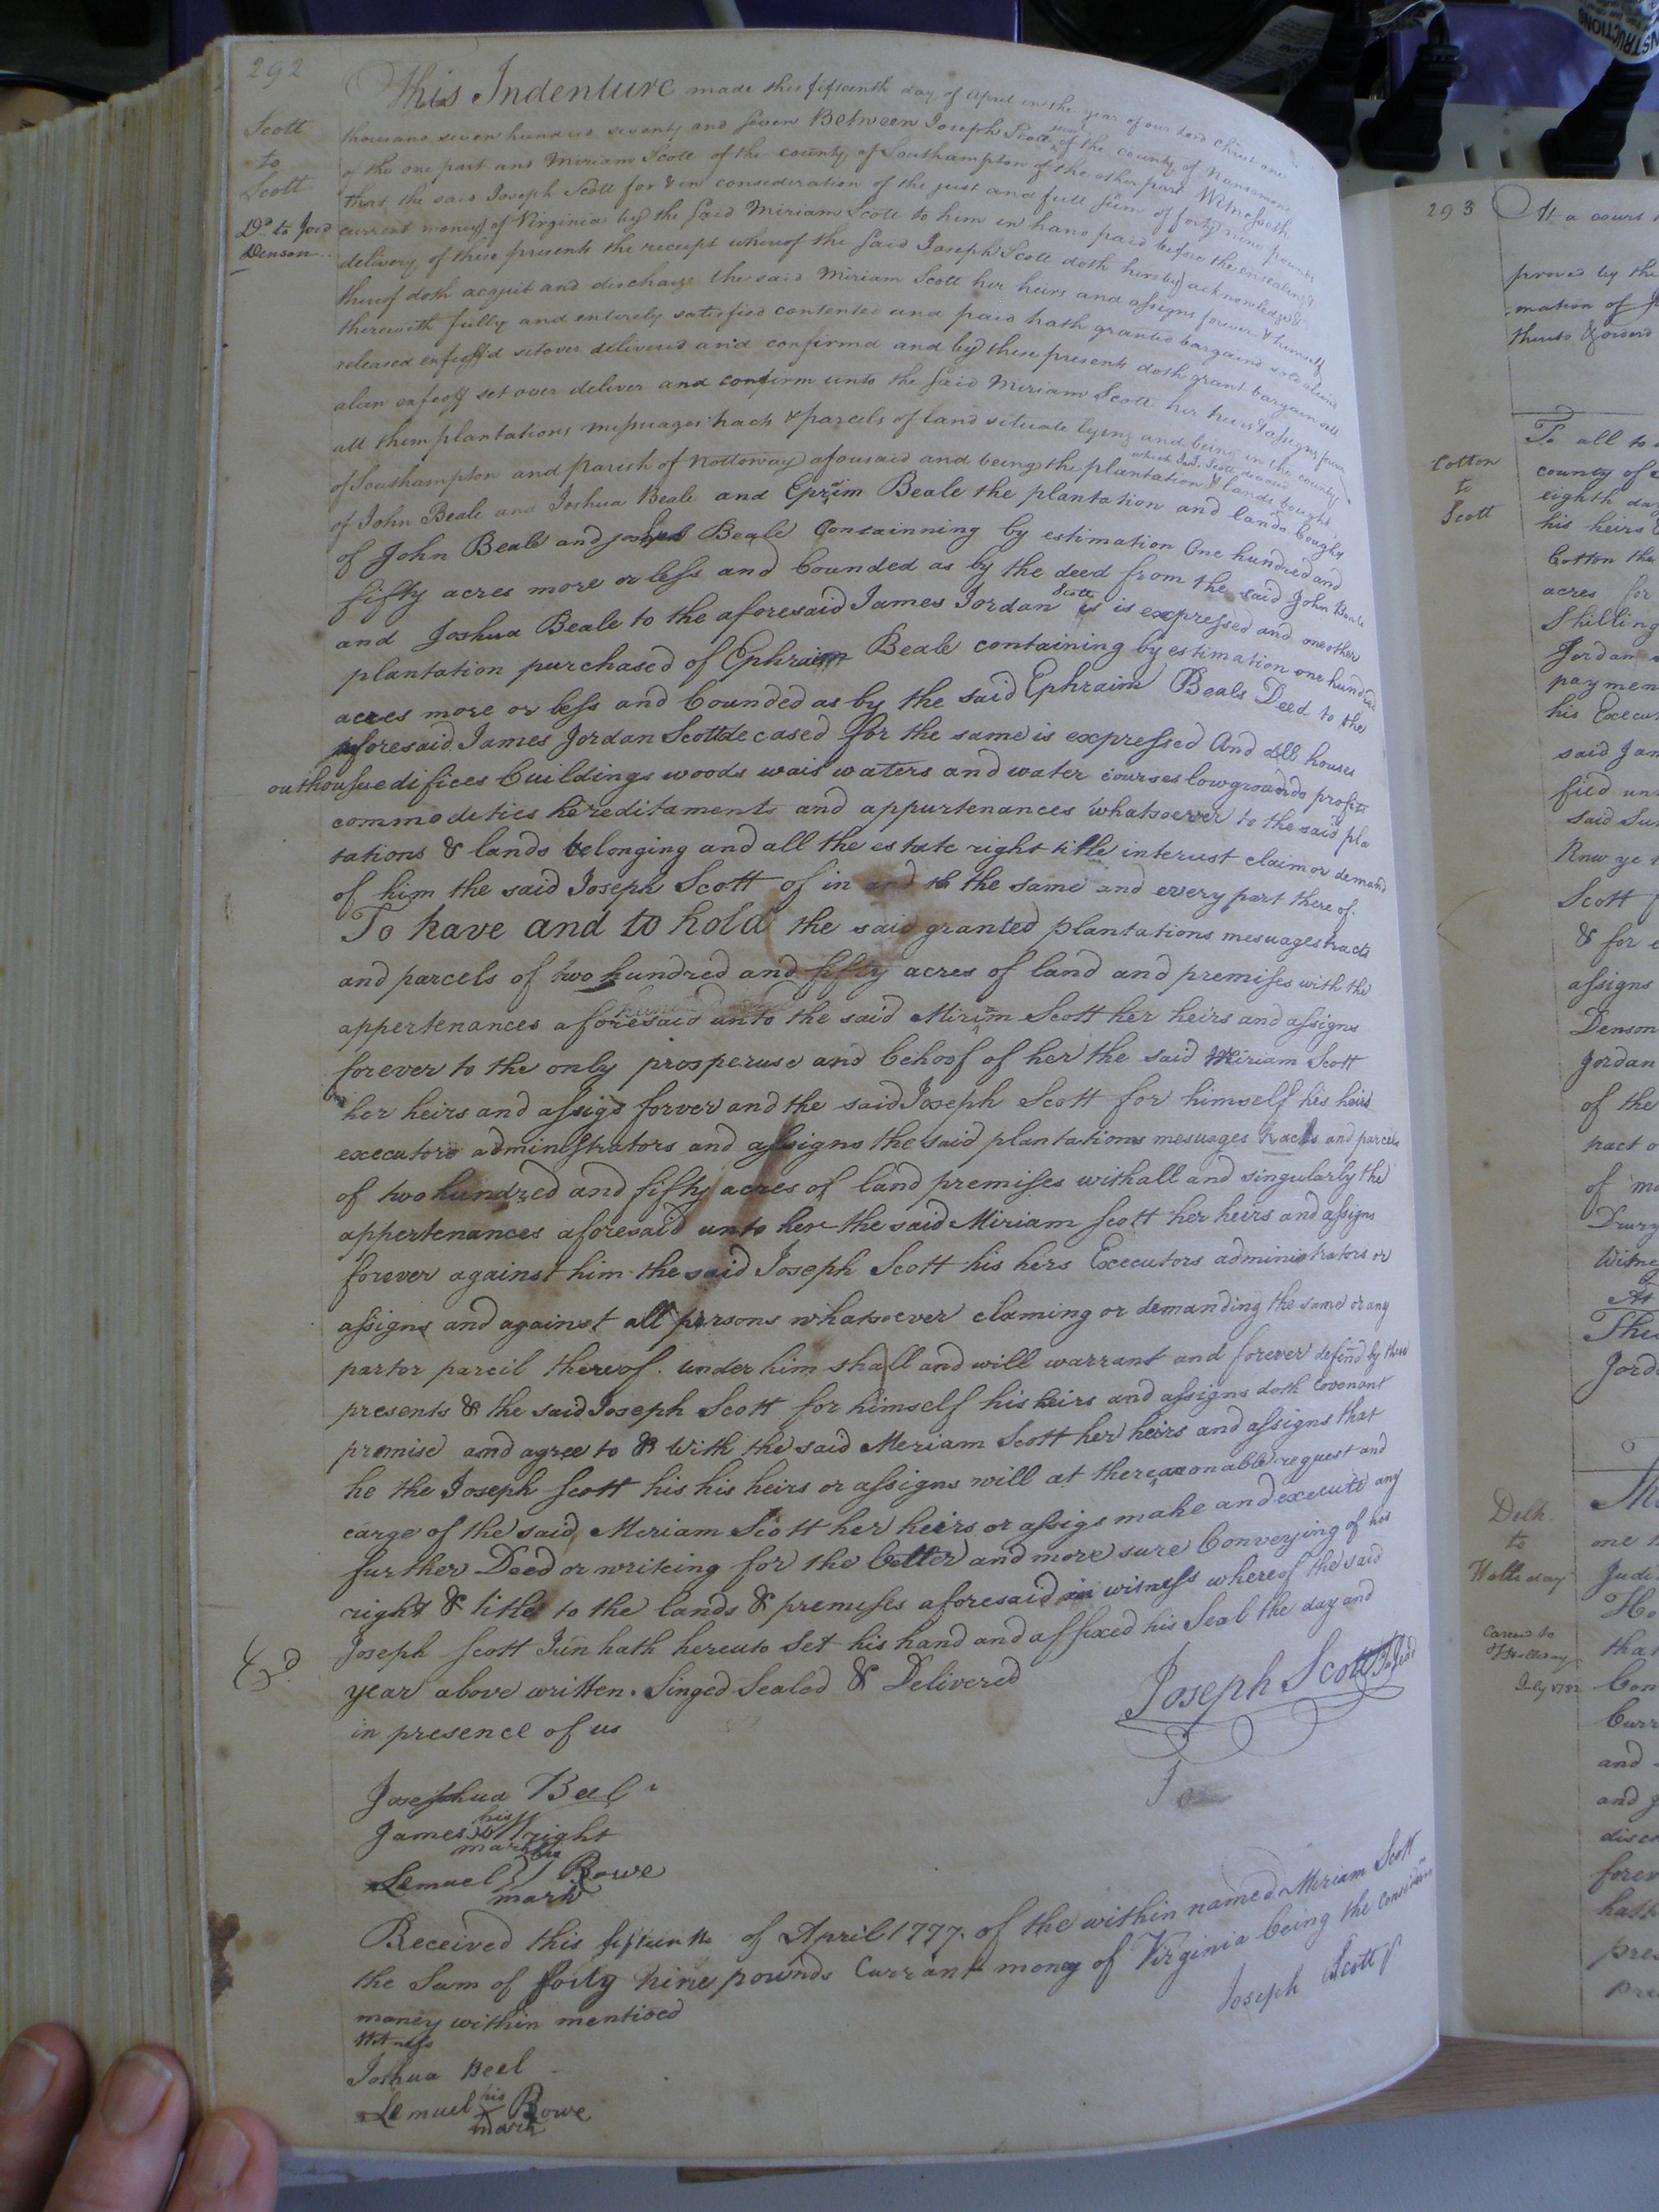 292
Scott
to
Scott
Dd. to Jord
Denson
This Indenture made this fifteenth day of April in the year of our Lord Christ one
thousand seven hundred seventy and seven Between Joseph Scott junr of the county of Nansemond
of the one part and Miriam Scott of the county of Southampton of the other part Witnesseth
that the said Joseph Scott for & in consideration of the just and full sum of forty nine pounds
current money of Virginia by the said Miriam Scott to him in hand paid before the ensealing &
delivery of these presents the receipt whereof the said Joseph Scott doth hereby acknowledge &
thereof doth acquit and discharge the said Miriam Scott her heirs and assigns forever & himself
therewith fully and entirely satisfied contented and paid hath granted bargaind sold aliend
released enfeoff'd setover deliverd and confirmd and by these presents doth grant bargain sell
alien enfeoff set over deliver and confirm unto the said Miriam Scott her heirs & assigns forever
all them plantations messuages tracts & parcels of land situate lying and being in the county
of Southampton and parish of Nottoway afousaid and being the plantation & lands which Jas. J. Scott deceased bought
of John Beale and Joshua Beale and Epraim Beale the plantation and lands bought
of John Beale and Joshua Beale Containning by estimation One hundred and
fifty acres more or less and bounded as by the deed from the said John Beale
and Joshua Beale to the aforesaid James Jordan Scott is is expressed and one other
plantation purchased of Ephraim Beale containing by estimation one hundred
acres more or less and bounded as by the said Ephraim Beals Deed to the
aforesaid James Jordan Scott decased for the same is expressed And all houses
outhousue edifices buildings woods wais waters and water courses lowgrounds profits
commodeties hereditaments and appurtenances whatsoever to the said pla
tations & lands belonging and all the estate right title interust claim or demand
of him the said Joseph Scott of in and to the same and every part there of.
To have and to hold the said granted plantations mesuages tracts
and parcels of two hundred and fifty acres of land and premises with the
appertenances aforesaid unto the said Miriam Scott her heirs and assigns
forever to the only prosperuse and behoof of her the said Miriam Scott
her heirs and assigs forver and the said Joseph Scott for himself his heirs
executors administrators and assigns the said plantations mesuages tracts and parcels
of two hundred and fifty acres of land premises withall and singularly the
appertenances aforesaid unto her the said Miriam Scott her heirs and assigns
forever against him the said Joseph Scott his hers Executors administrators or
assigns and against all persons whatsoever claming or demanding the same or any
partor parcil thereof. under him shall and will warrant and forever defend by these
presents & the said Joseph Scott for himself his heirs and assigns doth Covenant
promise and agree to & With the said Meriam Scott her heirs and assigns that
he the Joseph Scott his his heirs or assigns will at the reasonable request and
carge of the said Meriam Scott her heirs or assigs make and execute any
further Deed or writeing for the better and more sure Conveying of his
right & title to the lands & premises aforesaid in witness whereof the said
Joseph Scott Jun hath hereuto set his hand and affixed his Seal the day and
year above written. Singed Sealed & Delivered
in presence of us
Joseph Scott
Josephua Beel
James his Wright
mark
Lemuel his Rowe
mark
Received this fifteenth of April 1777. of the within named Miriam Scott
the Sum of forty nine pounds Currant money of Virginia being the consideration
money within mentioed
Joseph Scott
Witness
Joshua Beel
Lemuel his Rowe
mark
293
At a court
proved by the
mation of
thereto & orderd
Cotton
to
Scott
To all to
county of
eighth day
his heirs
Cotton the
acres for
Shilling
Jordan
paymen
his Execu
said Jam
fied un
said Sum
Know ye
Scott
& for
assigns
Denson
Jordan
of the
tract o
of mo
Drury
Witne
At
The
Jord
Delk
to
Holladay
one
Judi
Ho
that
July 1782
Con
Curr
and
and
disch
forev
hath
pres
pre